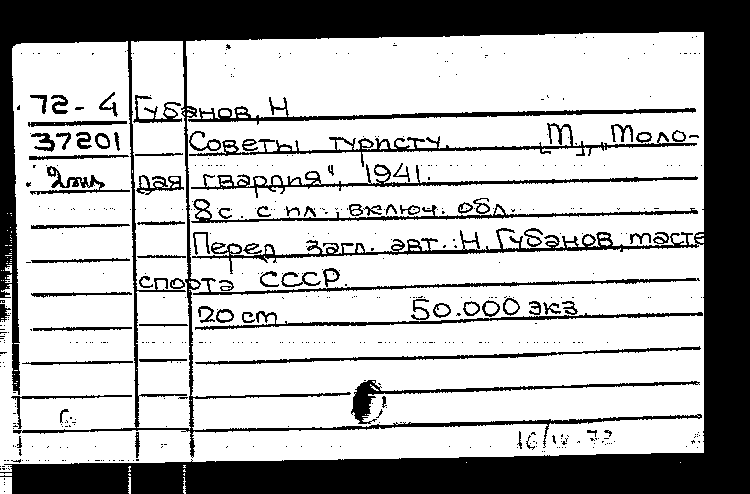 72-4 Губанов, Н
37201 Советы туристу. [М], „Моло-
2экз дая гвардия", 1941.
8 с. с пл., включ. обл.
Перед загл. авт.: Н. Губанов, масте
спорта СССР.
20 см. 50.000 экз.
16/IV-72